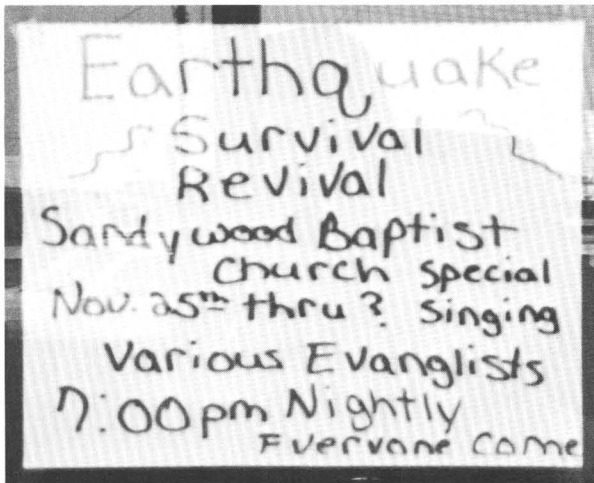 Earthquake
Survival
Revival
Sandywood Baptist
Church Special
Nov. 25th thru ? Singing
Various Evanglists
7:00pm Nightly
Everyone Come